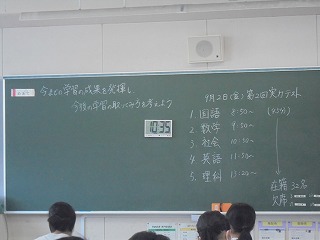 今までの学習の成果を発揮し、
今後の学習の取りくみ方を考えよう
10:35
9月2日(金)第2回実力テスト
1. 国語 8:50~ (45分)
2. 数学 9:50~
3. 社会 10:50~
4. 英語 11:50~
5. 理科 13:20~
在籍 32名
欠席